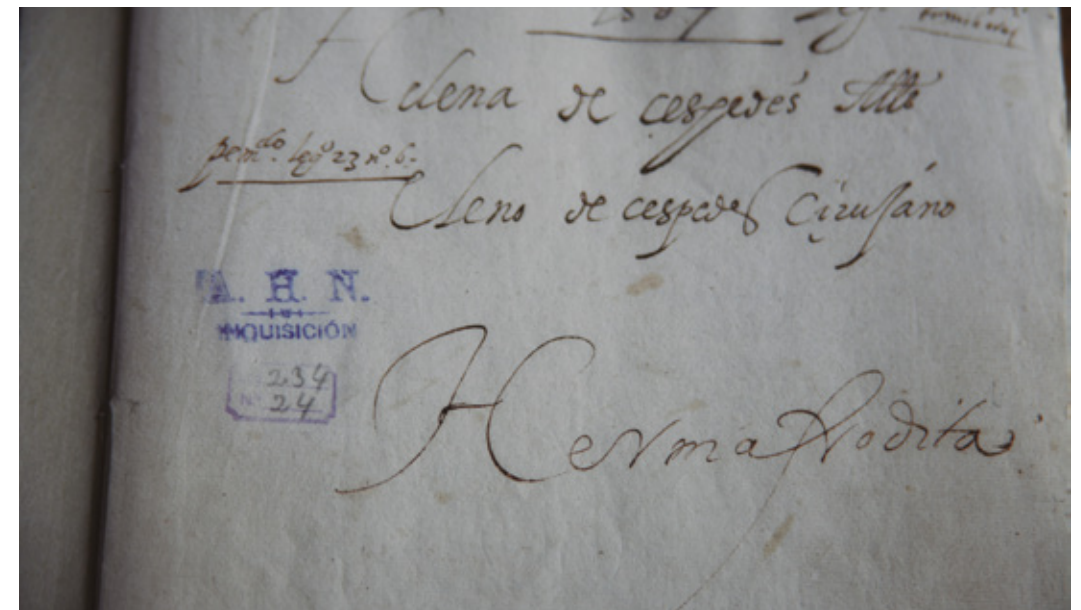 Helena de cespedes Alle
pen.do legº 23 nº. 6.
Eleno de cespedes Cirujano
A. H. N.
INQUISICIÓN
234
Nº 24
Hermafrodita